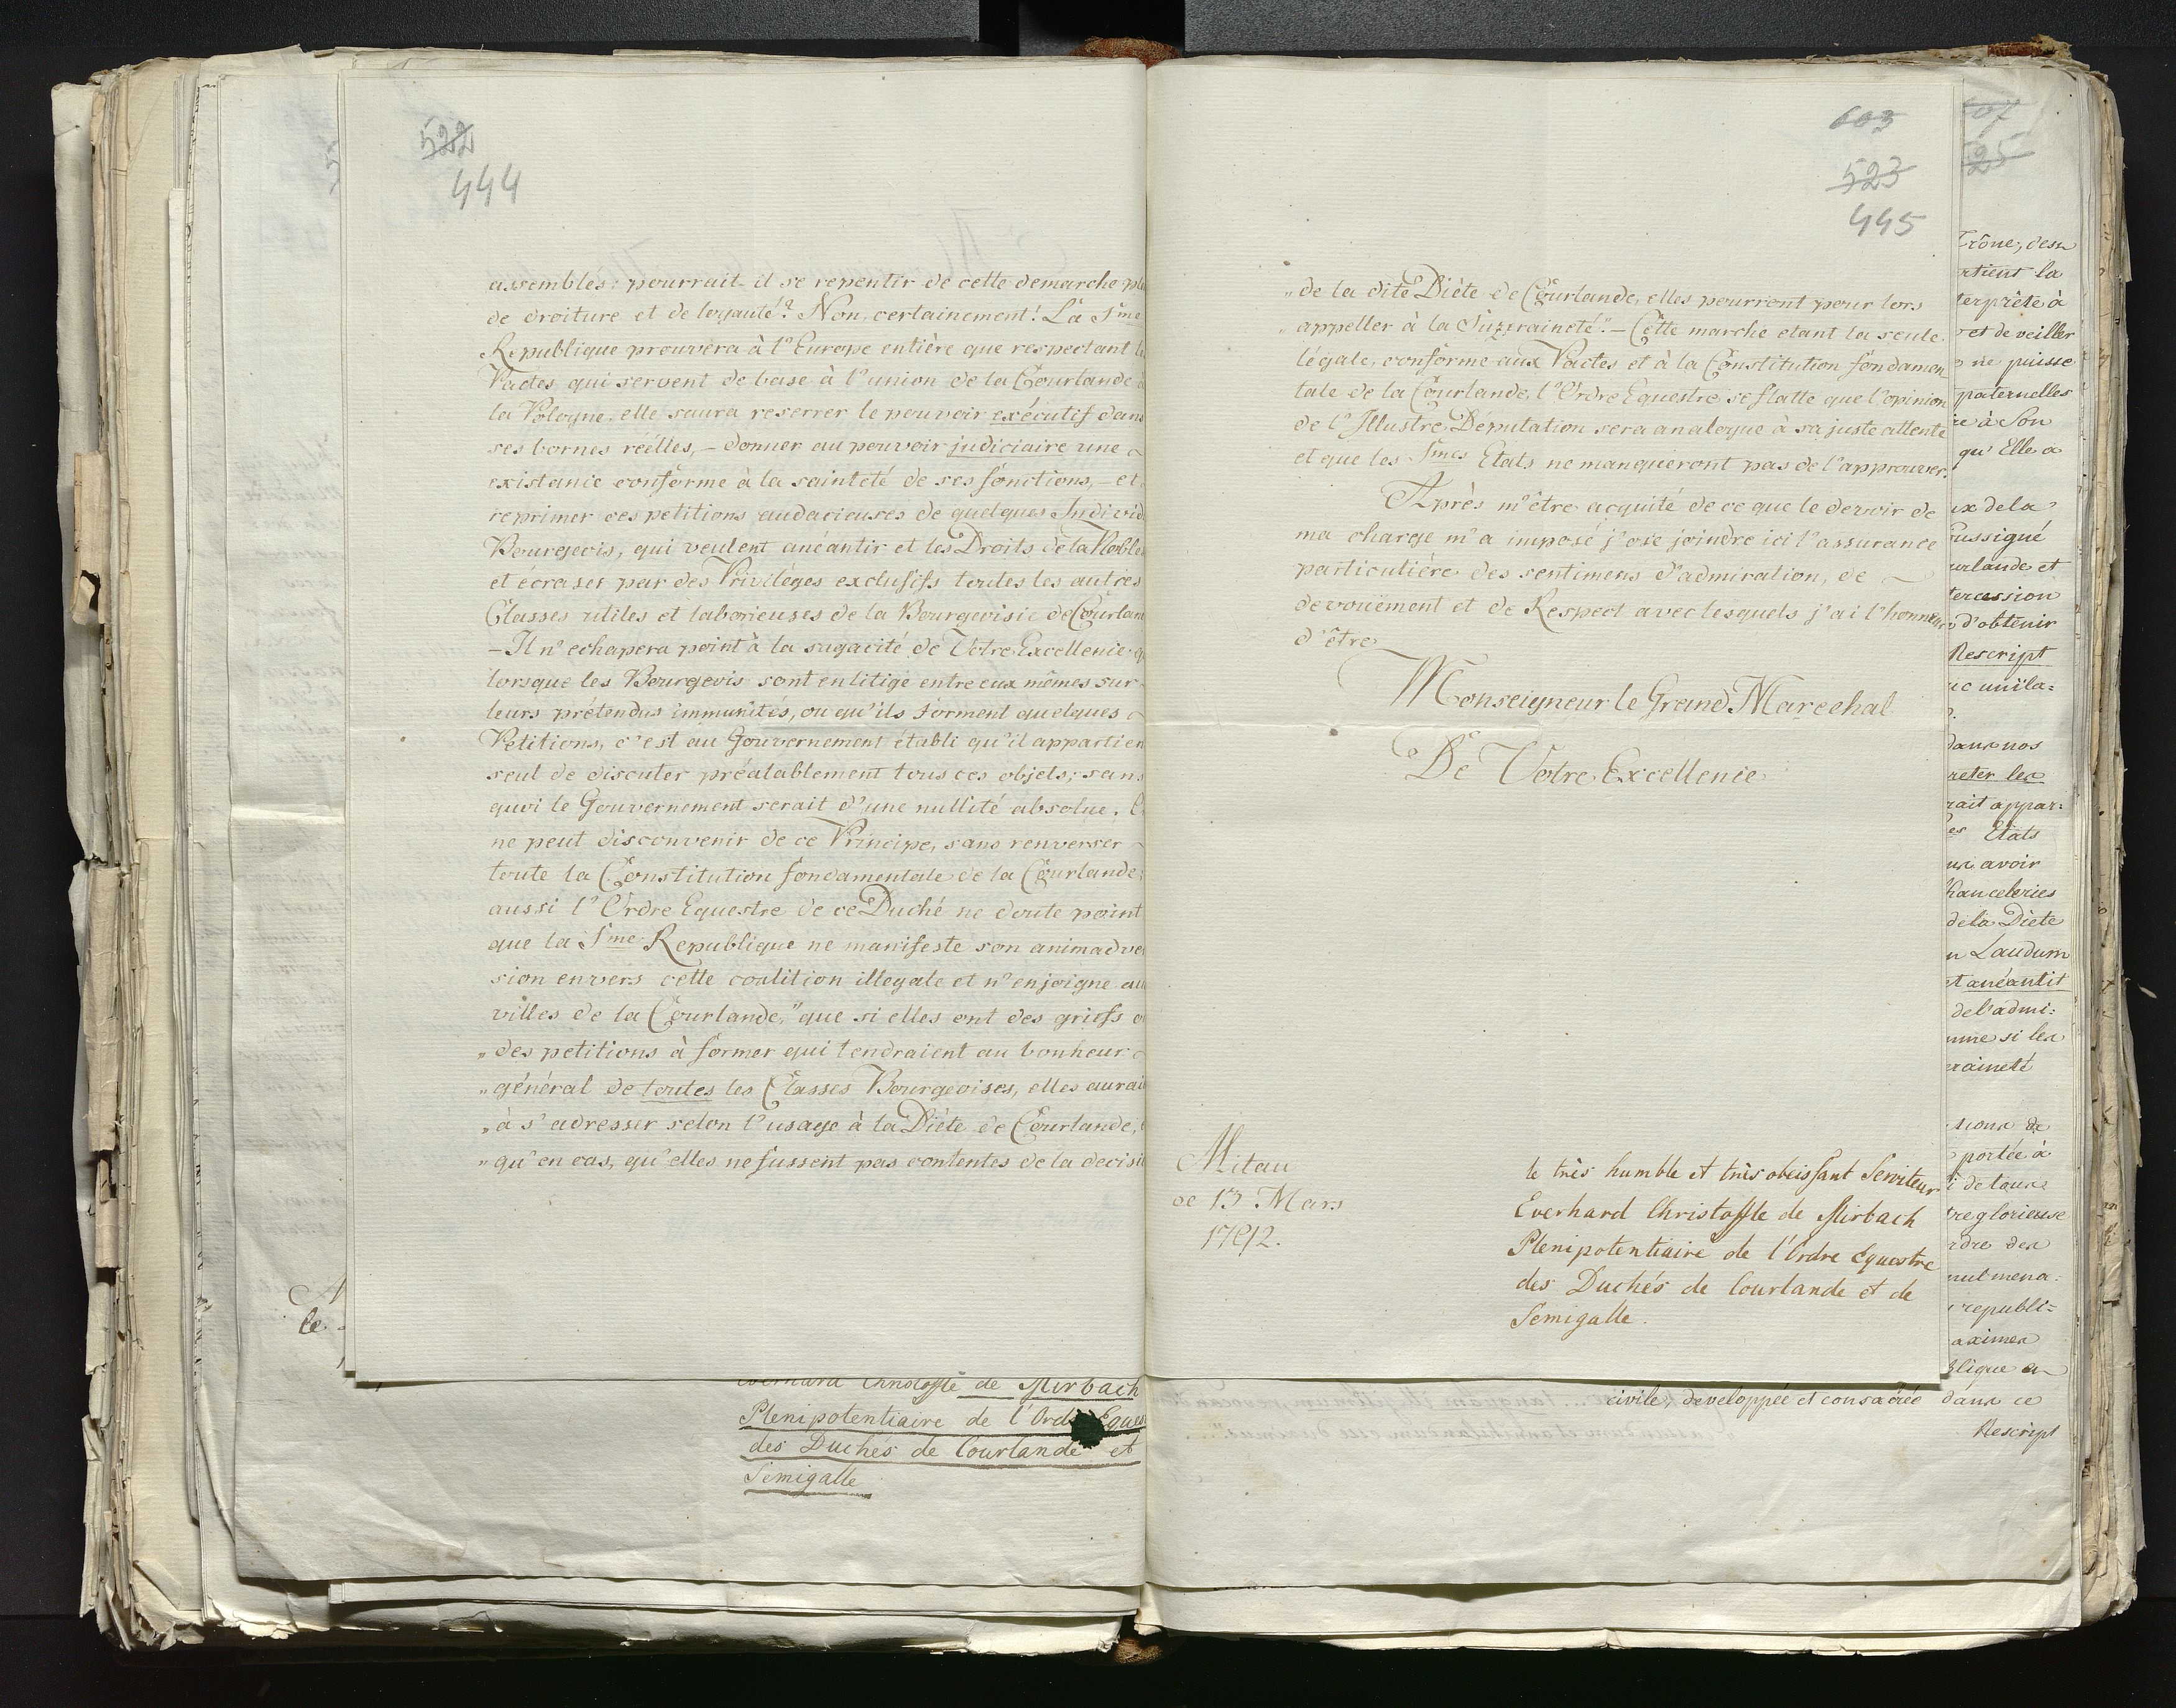 522
444
assemblés: pourrait-il se repentir de cette demarche
de droiture et de loyauté? Non, certainement! La Sme
Republique prouvera à l'Europe entière que respectant
Pactes, qui servent de base à l'union de la Courlande
la Pologne, elle saura reserrer le pouvoir exécutif dans
ses bornes réelles, - donner au pouvoir judiciaire une
existance conforme à la sainteté de ses fonctions, - et
reprimer ces petitions audacieuses de quelques Individ
Bourgeois, qui veulent anéantir et les Droits de la Noble
et écraser par des Privilèges exclusifs toutes les autres
Classes utiles et laborieuses de la Bourgeoisie de Courlan
- Il n'echapera point à la sagacité de Votre Excellence
lorsque les Bourgeois sont en litige entre eux mêmes sur
leurs prétendus immunités, ou qu'ils forment quelques
Petitions, c'est au Gouvernement établi qu'il appartien
seul de discuter préalablement tous ces objets; sans
quoi le Gouvernement serait d'une nullité absolue.
ne peut disconvenir de ce Principe, sans renverser
toute la Constitution fondamentale de la Courlande;
aussi l'Ordre Equestre de ce Duché ne doute point
que la Sme Republique ne manifeste son animadver
sion envers cette coalition illegale et n'enjoigne au
villes de la Courlande, "que si elles ont des griefs
"des petitions à former qui tendraient au bonheur
"général de toutes les Classes Bourgeoises, elles aurai
"à s'adresser selon l'usage à la Diète de Courlande,
"qu'en cas, qu'elles ne fussent pas contentes de la decisi
Everhard Christoffle de Mirbach
Plenipotentiaire de l'Ordre Eques
des Duchés de Courlande et
Semigalle
603
523
445
"de la dite Diète de Courlande, elles pourront pour lors
"appeller à la Suzeraineté." - Cette marche etant la seule
légale, conforme aux Pactes et à la Constitution fondamen
tale de la Courlande, l'Ordre Equestre se flatte que l'opinion
de l'Illustre Députation sera analogue à sa juste attente
et que les Smes Etats ne manqueront pas de l'approuver.
Après m'être acquité de ce que le devoir de
ma charge m'a imposé j'ose joindre ici l'assurance
particulière des sentimens d'admiration, de
devouement et de Respect avec lesquels j'ai l'honneur
d'être
Monseigneur le Grand Marechal
De Votre Excellence
Mitau
ce 13 Mars
1792.
le très humble et très obeissant Serviteur
Everhard Christoffle de Mirbach
Plenipotentiaire de l'Ordre Equestre
des Duchés de Courlande et de
Semigalle.
525
Trône, des
rtient la
terprète à
et de veiller
ne puisse
paternelles
re à Son
qu'Elle a
ux de la
Sussigné
urlande et
tercession
d'obtenir
Rescript
uc unila=
dans nos
reter les
rait appar=
es Etats
avoir
hanceleries
de la Diete
n Laudum
et anéantit
de l'admi=
mme si les
raineté
sions de
portée à
i de tous
tre glorieuse
rdre des
nut mena=
republi=
aximes
blique en
civile, developpée et consacrée dans ce
Rescript